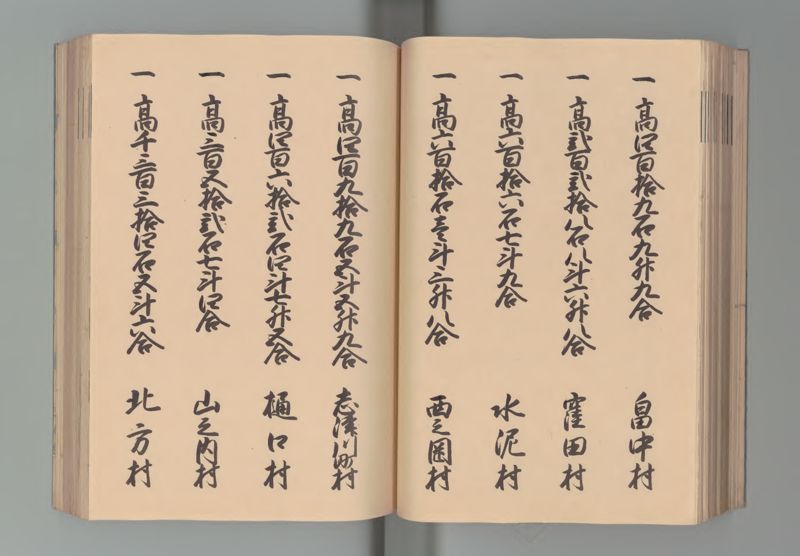 一 高四百拾九石九升九合 畠中村
一 高弐百弐拾八石八斗六升八合 窪田村
一 高六百拾六石七斗九合 水泥村
一 高六百拾石壱斗三升八合 西之岡村
一 高四百九拾九石五斗五升九合 志津川町村
一 高四百六拾弐石四斗七升五合 樋口村
一 高三百五拾弐石七斗四合 山之内村
一 高千三百三拾四石五斗六合 北方村